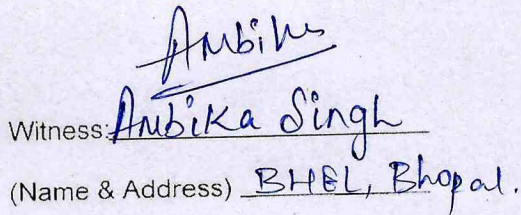 Ambika
Witness: Ambika Singh
(Name & Address) BHEL, Bhopal.